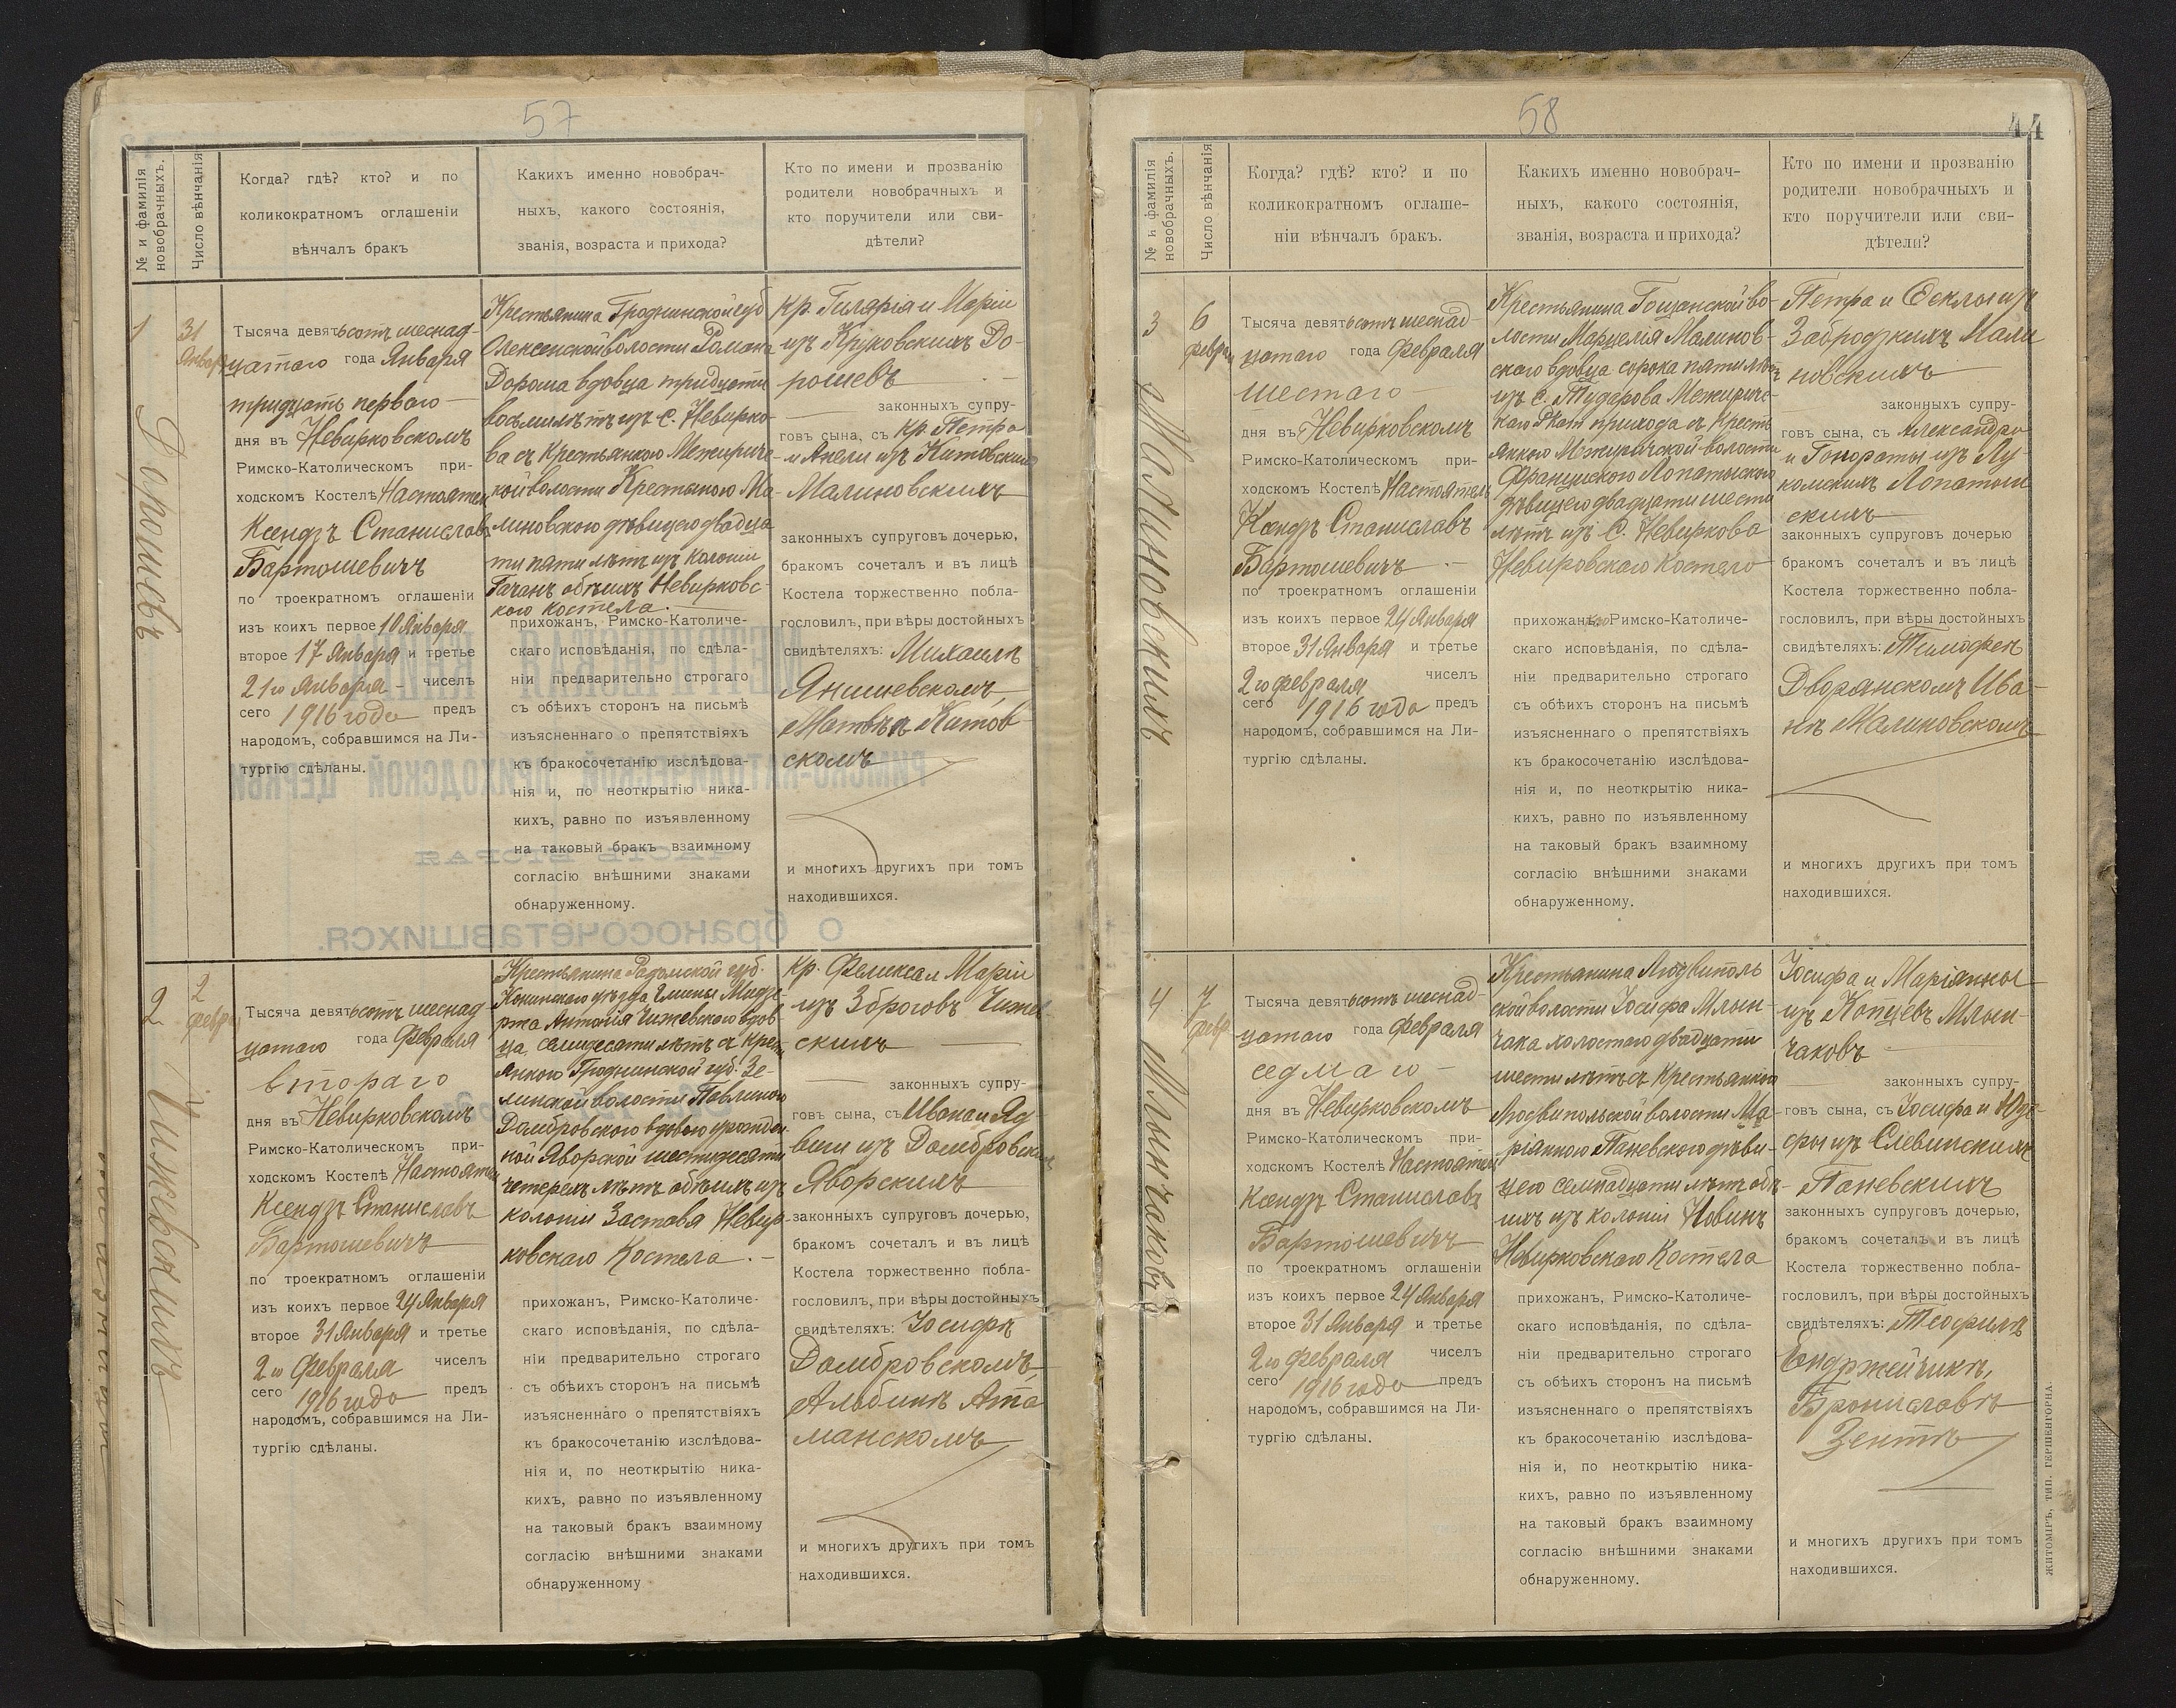 57
№ и фамилія новобрачныхъ.
Число вѣнчанія
Когда? гдѣ? кто? и по
коликократномъ оглашеніи
вѣнчалъ бракъ
Какихъ именно новобрач-
ныхъ, какого состоянія,
званія, возраста и прихода?
Кто по имени и прозванію
родители новобрачныхъ и
кто поручители или сви-
дѣтели?
1
31
Января
Дорошевъ
Тысяча девятьсотъ шеснад-
цатаго года Января
тридцать перваго
дня въ Невирковскомъ
Римско-Католическомъ при-
ходскомъ Костелѣ Настоятель
Ксендзъ Станиславъ
Бартошевичъ
по троекратномъ оглашеніи
изъ коихъ первое 10 Января
второе 17 Января и третье
21го Января чиселъ
сего 1916 года предъ
народомъ, собравшимся на Ли-
тургію сдѣланы.
Крестьянина Гродненской губ
Олексенской волости Романа
Дороша вдовца тридцати
восьми лѣтъ изъ с. Невирко-
ва съ Крестьянкою Межириче-
кой волости Крестиною Ма-
линовского дѣвицею двадца
ти пяти лѣтъ изъ колоніи
Гачанъ обѣихъ Невирковс
кого костела.
прихожанъ, Римско-Католиче-
скаго исповѣданія, по сдѣла-
ніи предварительно строгаго
съ обѣихъ сторонъ на письмѣ
изъясненнаго о препятствіяхъ
къ бракосочетанію изслѣдова-
нія и, по неоткрытію ника-
кихъ, равно по изъявленному
на таковый бракъ взаимному
согласію внѣшними знаками
обнаруженному.
Кр. Гиларія и Маріи
изъ Круковскихъ До-
рошевъ
законныхъ супру-
говъ сына, съ Кр. Петра
и Анели изъ Китовскихъ
Малиновскихъ
законныхъ супруговъ дочерью,
бракомъ сочеталъ и въ лицѣ
Костела торжественно побла-
гословилъ, при вѣры достойныхъ
свидѣтеляхъ: Михаилѣ
Янишевскомъ,
Матвѣѣ Китов-
скомъ
и многихъ других при томъ
находившихся.
2
2
Февраля
Чижевскихъ
Тысяча девятьсотъ шеснад-
цатаго года Февраля
втораго
дня въ Невирковскомъ
Римско-Католическомъ при-
ходскомъ Костелѣ Настоятель
Ксендзъ Станиславъ
Бартошевичъ
по троекратномъ оглашеніи
изъ коихъ первое 24 Января
второе 31 Января и третье
2го Февраля чиселъ
сего 1916 года предъ
народомъ, собравшимся на Ли-
тургію сдѣланы.
Крестьянина Радомской губ.
уѣзда Гмины
Антонія Чижевского вдов
ца семидесяти лѣтъ съ Крест
янкою Гродненской губ. Зе-
линской волости Павлиною
Домбровского вдовою урожден
ной Яворской шестидесяти
четерехъ лѣтъ обѣихъ изъ
колоніи Заставя Невир-
ковскаго Костела.
прихожанъ, Римско-Католиче-
скаго исповѣданія, по сдѣла-
ніи предварительно строгаго
съ обѣихъ сторонъ на письмѣ
изъясненнаго о препятствіяхъ
къ бракосочетанію изслѣдова-
нія и, по неоткрытію ника-
кихъ, равно по изъявленному
на таковый бракъ взаимному
согласію внѣшними знаками
обнаруженному
Кр. Феликса и Маріи
изъ Зброговъ Чижев
скихъ
законныхъ супру-
говъ сына, съ Ивана и Яд-
виги изъ Домбровскихъ
Яворскихъ
законныхъ супруговъ дочерью,
бракомъ сочеталъ и въ лицѣ
Костела торжественно побла-
гословилъ, при вѣры достойныхъ
свидѣтеляхъ: Іосифѣ
Домбровскомъ,
Альбинѣ Ата
манскомъ
и многихъ другихъ при томъ
находившихся.
58
44
№ и фамилія новобрачныхъ.
Число вѣнчанія
Когда? гдѣ? кто? и по
коликократномъ оглаше-
ніи вѣнчалъ бракъ.
Какихъ именно новобрач-
ныхъ, какого состоянія,
званія, возраста и прихода?
Кто по имени и прозванію
родители новобрачныхъ и
кто поручители или сви-
дѣтели?
3
6
Февраля
Малиновскихъ
Тысяча девятьсотъ шеснад-
цатаго года Февраля
шестаго
дня въ Невирковскомъ
Римско-Католическомъ при-
ходскомъ Костелѣ Настоятель
Ксендзъ Станиславъ
Бартошевичъ
по троекратномъ оглашеніи
изъ коихъ первое 24 Января
второе 31 Января и третье
2го февраля чиселъ
сего 1916 года предъ
народомъ, собравшимся на Ли-
тургію сдѣланы.
Крестьянина Гощанской во-
лости Марцелія Малинов-
ского вдовца сорока пяти лѣтъ
изъ с. Тударова Межиричс-
каго Р Кат прихода съ Кресть
янкою Межиричской волости
Францишкою Лопатынского
дѣвицею двадцати шести
лѣтъ изъ С. Невиркова
Невирковскаго Костела
прихожанъ, Римско-Католиче-
скаго исповѣданія, по сдѣла-
ніи предварительно строгаго
съ обѣихъ сторонъ на письмѣ
изъясненнаго о препятствіяхъ
къ бракосочетанію изслѣдова-
нія и, по неоткрытію ника-
кихъ, равно по изъявленному
на таковый бракъ взаимному
согласію внѣшними знаками
обнаруженному.
Петра и Феклы изъ
Забродзкихъ Мали
новскихъ
законныхъ супру-
говъ сына, съ Александра
и Гонораты изъ Лу-
комскихъ Лопатын
скихъ
законныхъ супруговъ дочерью
бракомъ сочеталъ и въ лицѣ
Костела торжественно побла-
гословилъ, при вѣры достойныхъ
свидѣтеляхъ: Тимофеѣ
Дворянскомъ Ива-
нѣ Малиновскомъ
и многихъ другихъ при томъ
находившихся.
4
7
февр
Млынчаковъ
Тысяча девятьсотъ шеснад-
цатаго года Февраля
седмаго
дня въ Невирковскомъ
Римско-Католическомъ при-
ходскомъ Костелѣ Настоятель
Ксендзъ Станиславъ
Бартошевичъ
по троекратномъ оглашеніи
изъ коихъ первое 24 Января
второе 31 Января и третье
2го февраля чиселъ
сего 1916 года предъ
народомъ, собравшимся на Ли-
тургію сдѣланы.
Крестьянина Людвиполь
ской волости Іосифа Млын-
чака холостаго двадцати
шести лѣтъ съ Крестьянкою
Людвипольской волости Ма-
ріянною Паневского дѣви-
цею семнадцати лѣтъ обѣ-
ихъ изъ колоніи Новинъ
Невирковскаго Костела
прихожанъ, Римско-Католиче-
скаго исповѣданія, по сдѣла-
ніи предварительно строгаго
съ обѣихъ сторонъ на письмѣ
изъясненнаго о препятствіяхъ
къ бракосочетанію изслѣдова-
нія и, по неоткрытію ника-
кихъ, равно по изъявленному
на таковый бракъ взаимному
согласію внѣшними знаками
обнаруженному.
Іосифа и Маріянны
изъ Копцевъ Млын-
чаковъ
законныхъ супру-
говъ сына, съ Іосифа и Юзе-
фы изъ Слевинскихъ
Паневскихъ
законныхъ супруговъ дочерью,
бракомъ сочеталъ и въ лицѣ
Костела торжественно побла-
гословилъ, при вѣры достойныхъ
свидѣтеляхъ: Теофилѣ
Ендржейчикѣ,
Брониславѣ
Зентѣ
и многихъ другихъ при томъ
находившихся.
ЖИТОМІРЪ, ТИП. ГЕРШЕНГОРНА.